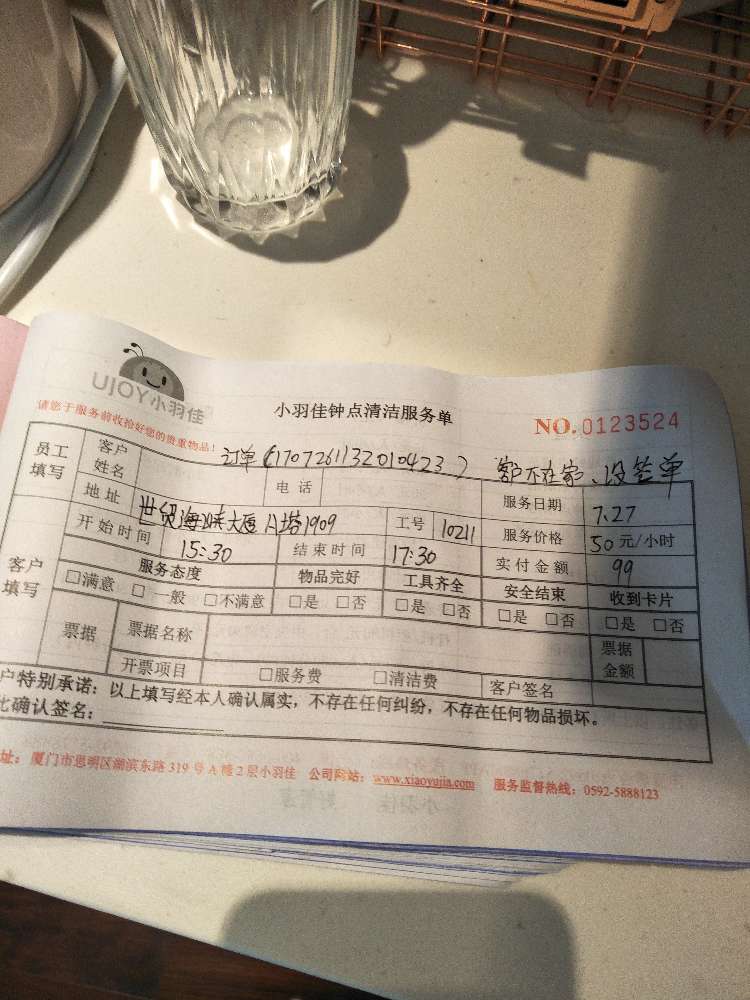 UJOY小羽佳
小羽佳钟点清洁服务单
NO.0123524
请您于服务前收拾好您的贵重物品!
员工填写
客户姓名 订单(1707261132010423) 客户不在家、没签单
电话
服务日期 7.27
地址 世贸海峡大厦A塔1909
工号 10211
服务价格 50元/小时
开始时间 15:30
结束时间 17:30
实付金额 99
客户填写
服务态度 物品完好 工具齐全 安全结束 收到卡片
□满意 □一般 □不满意 □是 □否 □是 □否 □是 □否 □是 □否
票据
票据名称
票据金额
开票项目 □服务费 □清洁费 客户签名
户特别承诺:以上填写经本人确认属实,不存在任何纠纷,不存在任何物品损坏。
此确认签名:
址:厦门市思明区湖滨东路319号A幢2层小羽佳 公司网站:www.xiaoyujia.com 服务监督热线:0592-5888123